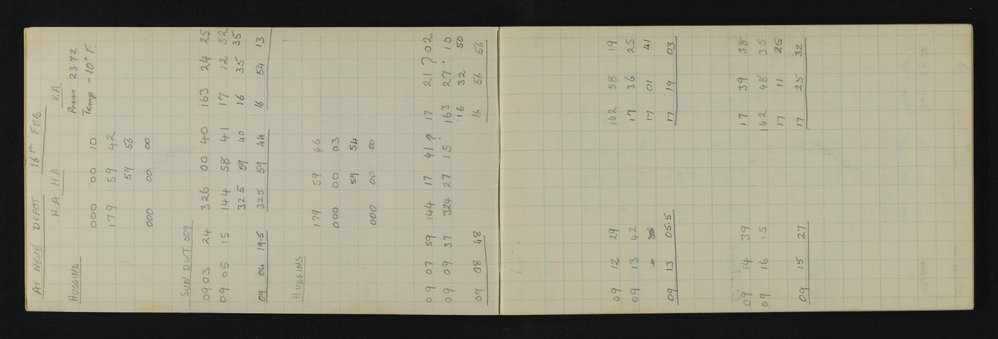 AT NEVE DEPOT 16TH FEB
H.A H.A V.A
HUGGINS Press 23.72
000 00 10 Temp -10° F.
179 59 42
59 56
000 00 00
SUN DWT 609
09 03 24 326 00 40 163 24 25
09 05 15 144 58 41 17 12 52
325 59 40 16 35 35
09 04 19.5 325 59 44 16 54 13
HUGGINS
179 59 46
000 00 03
59 54
000 00 00
09 07 59 144 17 41? 17 21? 02
09 09 37 324 27 15! 163 27 10
16 32 50
09 08 48 16 56 56
09 12 29 162 58 19
09 13 42 17 36 25
17 01 41
09 13 05.5 17 19 03
09 14 39 17 39 38
09 16 15 162 48 35
17 11 25
09 15 27 17 25 32